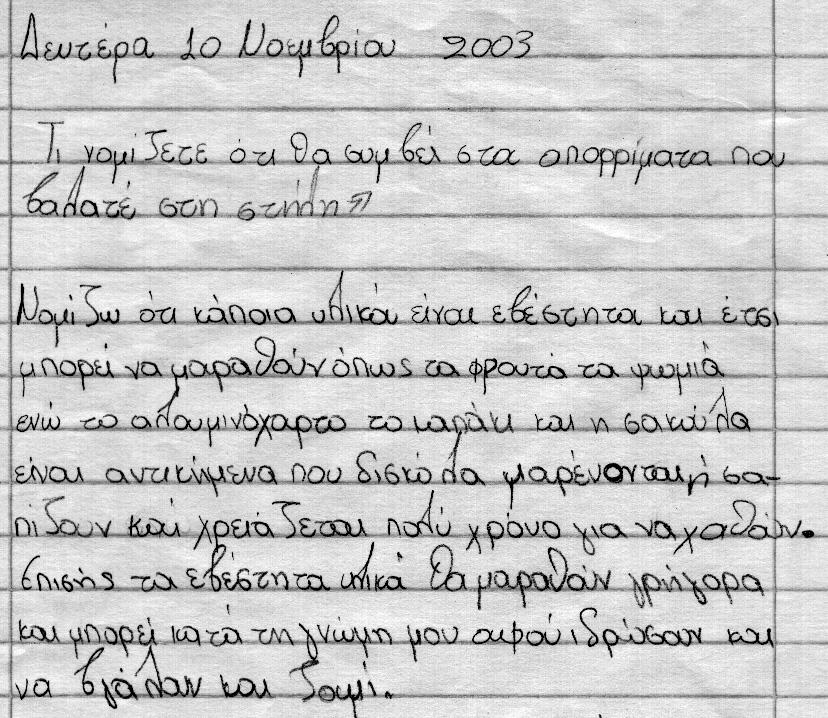 Δευτέρα 10 Νοεμβρίου 2003
Τι νομίζετε ότι θα συμβεί στα απορρίματα που
βαλατέ στη στήλη;
Νομίζω ότι κάποια υλικά είναι εβέστητα και έτσι
μπορεί να μαραθούν όπως τα φρουτά τα ψωμιά
ενώ το αλουμινόχαρτο το καπάκι και η σακούλα
είναι αντικήμενα που δισκόλα μαρένονται ή σα-
πίζουν και χρειάζεται πολύ χρόνο για να χαθούν.
Επισής τα εβέστητα υλικά θα μαραθούν γρήγορα
και μπορεί κατά τη γνώμη μου αφού ιδρώσουν και
να βγάλαν και ζουμί.